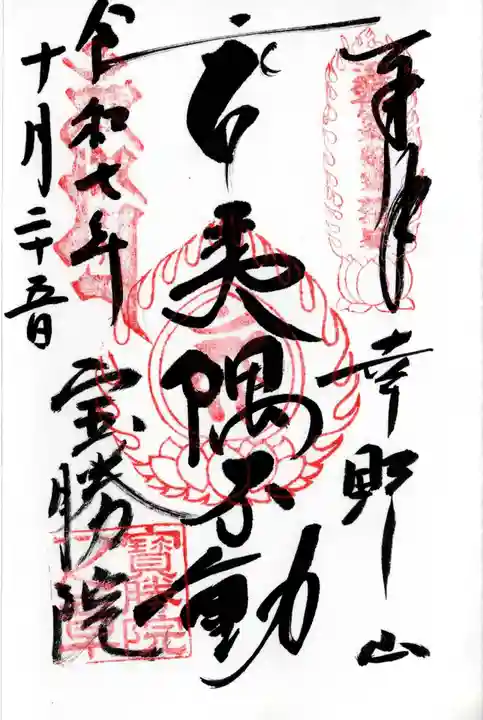 奉拝
幸野山
夷隅不動
令和七年
十月二十五日
宝勝院
寳勝院